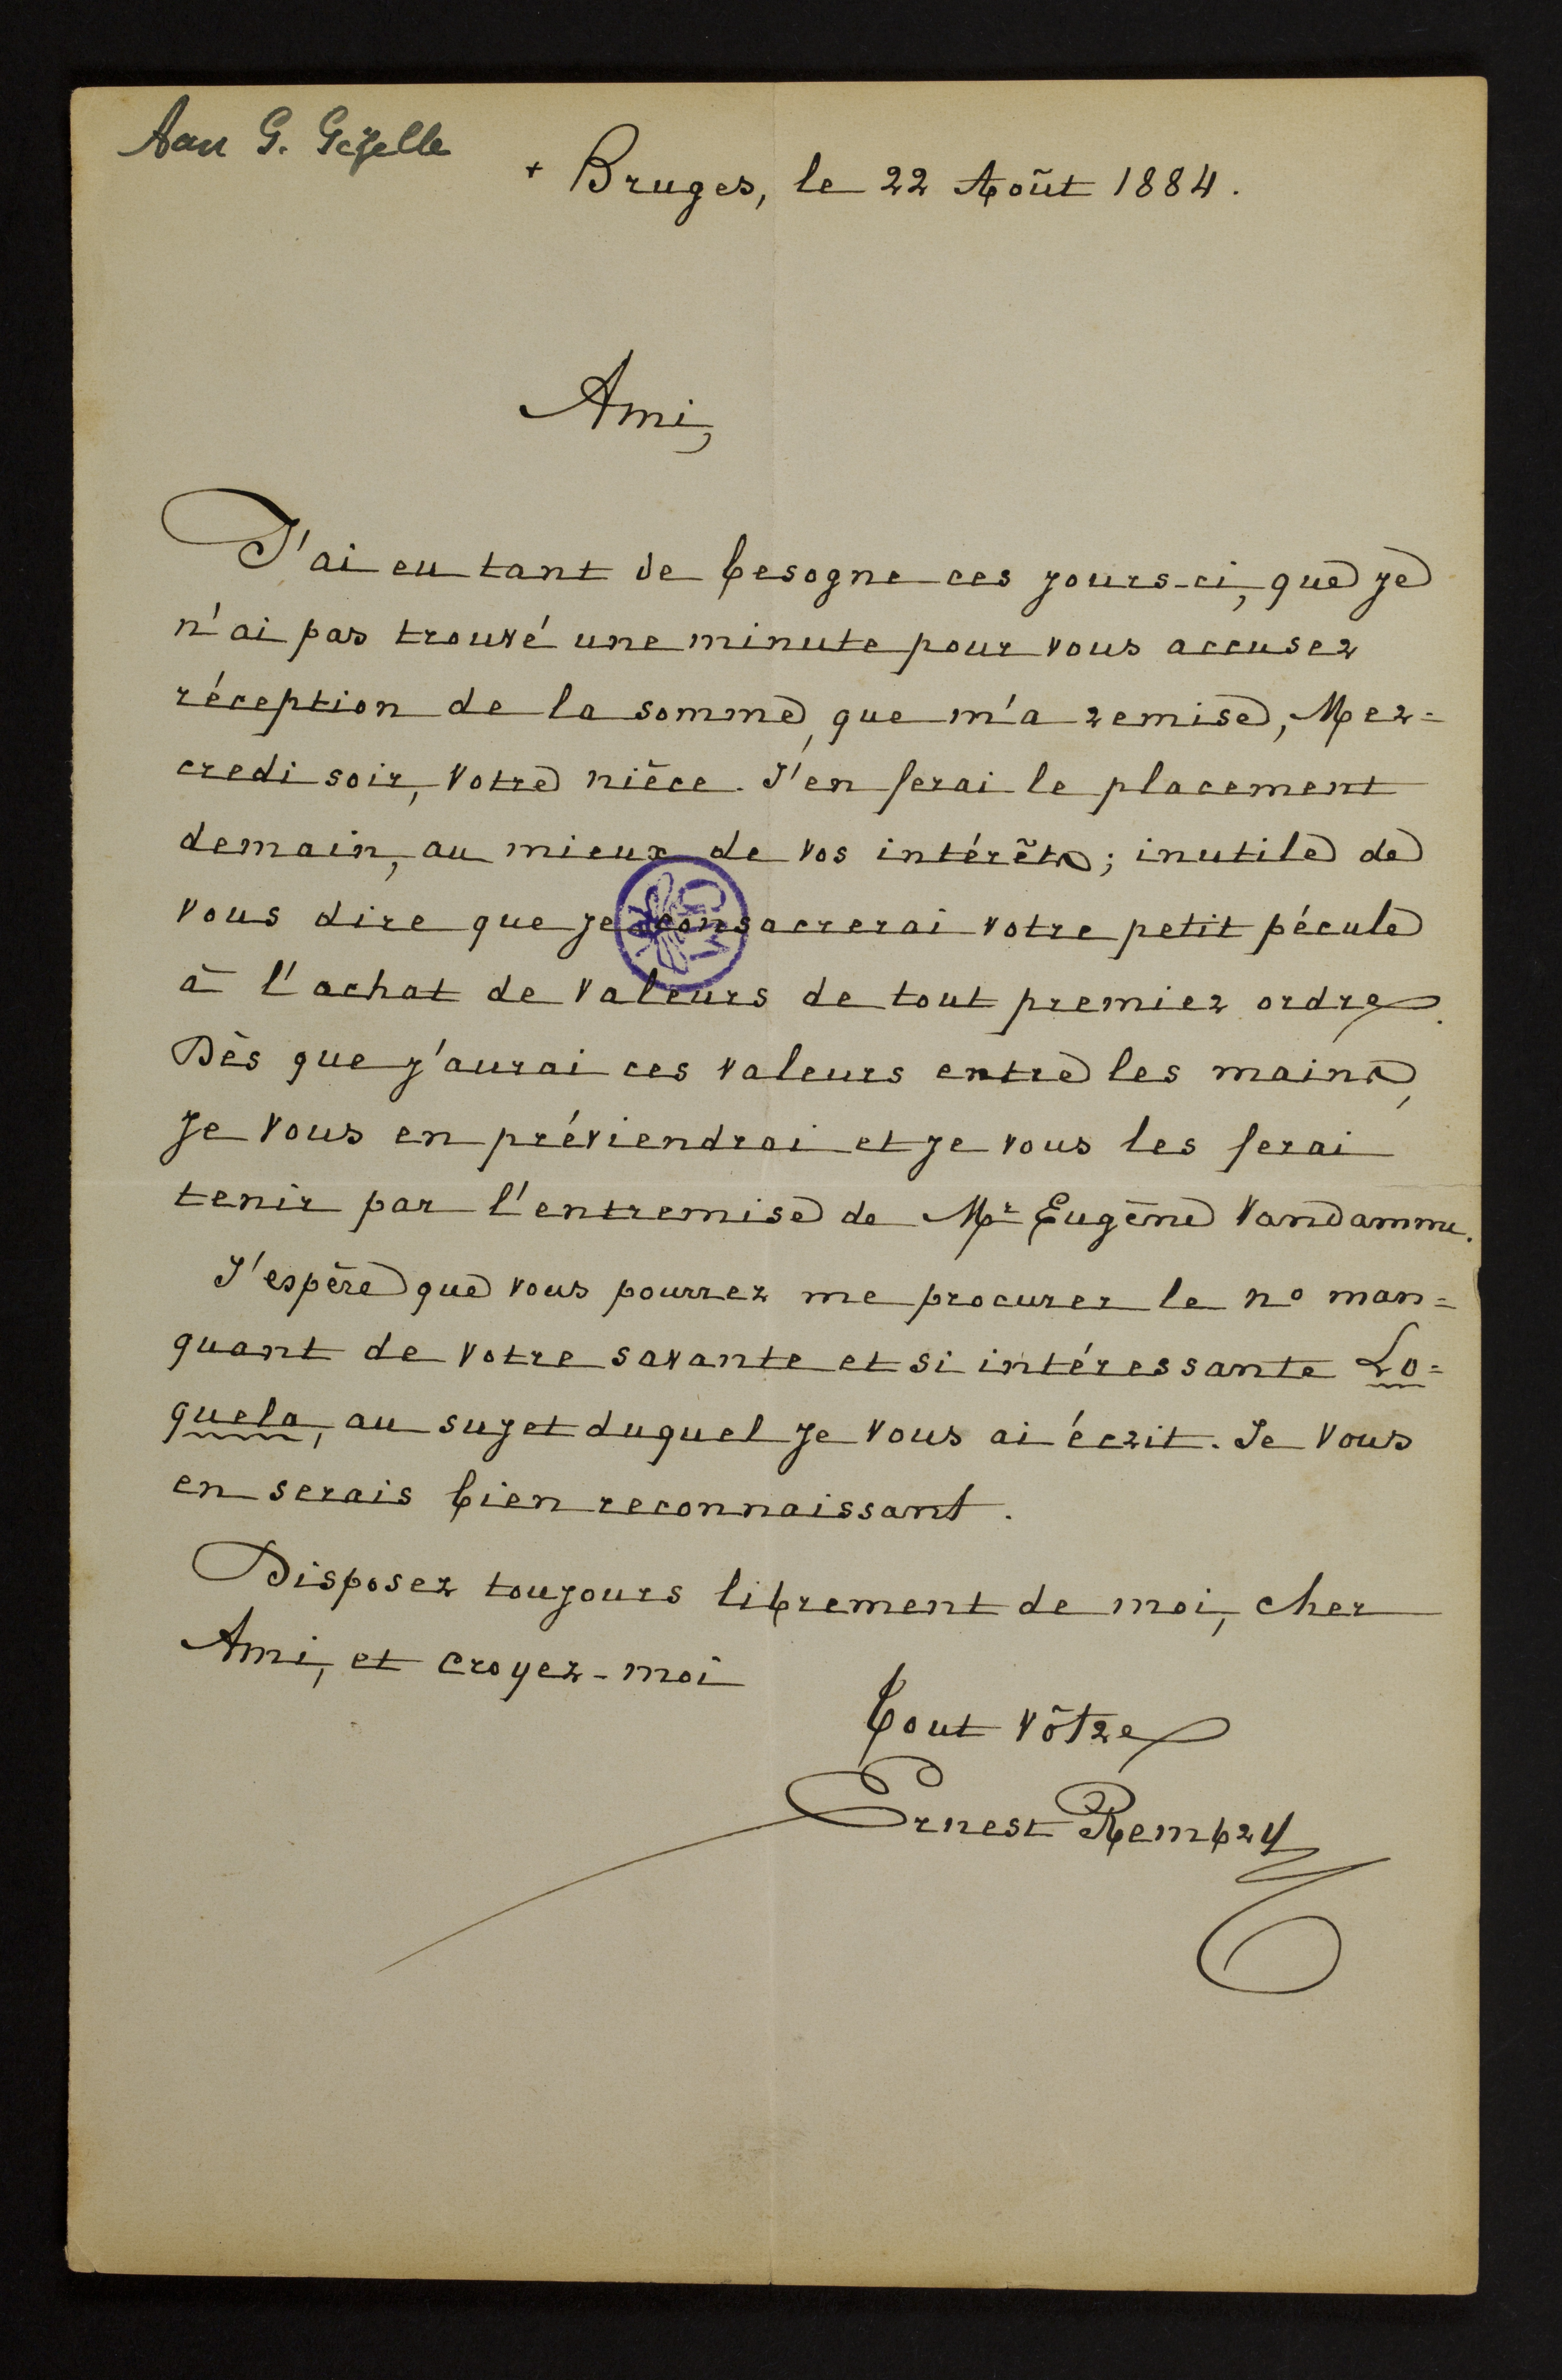 Aan G. Gezelle
+ Bruges, le 22 Août 1884.
Ami,
J'ai eu tant de besogne ces jours-ci, que je
n'ai pas trouvé une minute pour vous accuser
réception de la somme, que m'a remise, Mer=
credi soir, votre nièce. J'en ferai le placement
demain, au mieux de vos intérêts; inutile de
vous dire que je consacrerai votre petit pécule
à l'achat de valeurs de tout premier ordre.
Dès que j'aurai ces valeurs entre les mains,
je vous en préviendrai et je vous les ferai
tenir par l'entremise de Mr Eugène Vandamme.
J'espère que vous pourrez me procurer le no man=
quant de votre savante et si intéressante Lo=
quela, au sujet duquel je vous ai écrit. Je vous
en serais bien reconnaissant.
Disposez toujours librement de moi, cher
Ami, et croyez-moi
Tout vôtre
Ernest Rembry